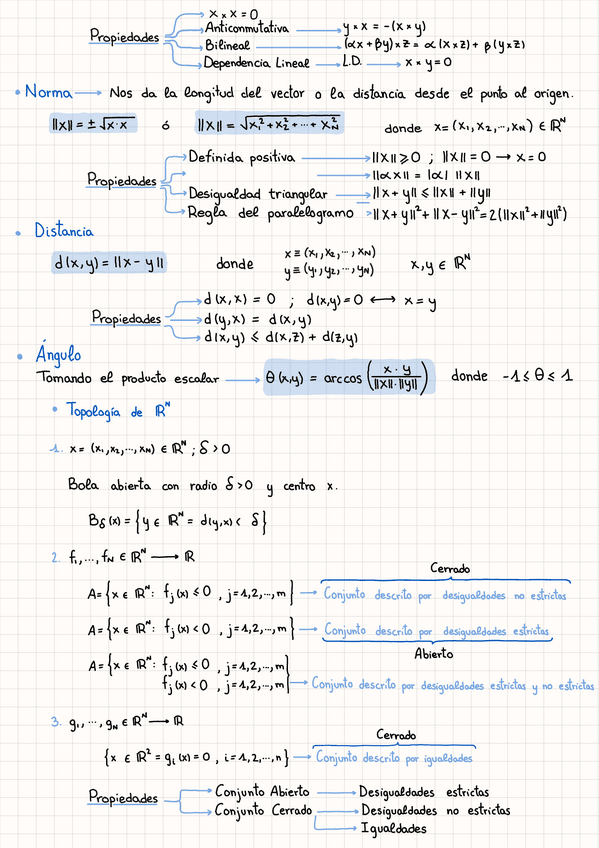 x × x = 0
Propiedades
Anticonmutativa → y × x = -(x × y)
Bilineal → (αx + βy) × z = α(x × z) + β(y × z)
Dependencia Lineal → L.D. → x × y = 0
• Norma → Nos da la longitud del vector o la distancia desde el punto al origen.
||x|| = ± √x·x ó ||x|| = √x₁² + x₂² + ··· + x_N² donde x = (x₁, x₂, ..., x_N) ∈ ℝᴺ
Definida positiva → ||x|| ⩾ 0 ; ||x|| = 0 → x = 0
Propiedades → ||αx|| = |α| ||x||
Desigualdad triangular → ||x + y|| ⩽ ||x|| + ||y||
Regla del paralelogramo → ||x + y||² + ||x - y||² = 2(||x||² + ||y||²)
• Distancia
d(x,y) = ||x - y|| donde x ≡ (x₁, x₂, ..., x_N) x, y ∈ ℝᴺ
y ≡ (y₁, y₂, ..., y_N)
d(x,x) = 0 ; d(x,y) = 0 ⟷ x = y
Propiedades → d(y,x) = d(x,y)
d(x,y) ⩽ d(x,z) + d(z,y)
• Ángulo
Tomando el producto escalar → θ(x,y) = arccos (x · y / ||x||·||y||) donde -1 ⩽ θ ⩽ 1
• Topología de ℝᴺ
1. x = (x₁, x₂, ..., x_N) ∈ ℝᴺ ; δ > 0
Bola abierta con radio δ > 0 y centro x.
Bδ(x) = {y ∈ ℝᴺ = d(y,x) < δ}
2. f₁, ..., f_N ∈ ℝᴺ → ℝ
Cerrado
A = {x ∈ ℝᴺ: f_j(x) ⩽ 0 , j = 1,2,...,m} → Conjunto descrito por desigualdades no estrictas
A = {x ∈ ℝᴺ: f_j(x) < 0 , j = 1,2,...,m} → Conjunto descrito por desigualdades estrictas
Abierto
A = {x ∈ ℝᴺ: f_j(x) ⩽ 0 , j = 1,2,...,m
f_j(x) < 0 , j = 1,2,...,m} → Conjunto descrito por desigualdades estrictas y no estrictas
3. g₁, ..., g_N ∈ ℝᴺ → ℝ
Cerrado
{x ∈ ℝ² = g_i(x) = 0 , i = 1,2,...,n} → Conjunto descrito por igualdades
Propiedades → Conjunto Abierto → Desigualdades estrictas
Conjunto Cerrado → Desigualdades no estrictas
→ Igualdades